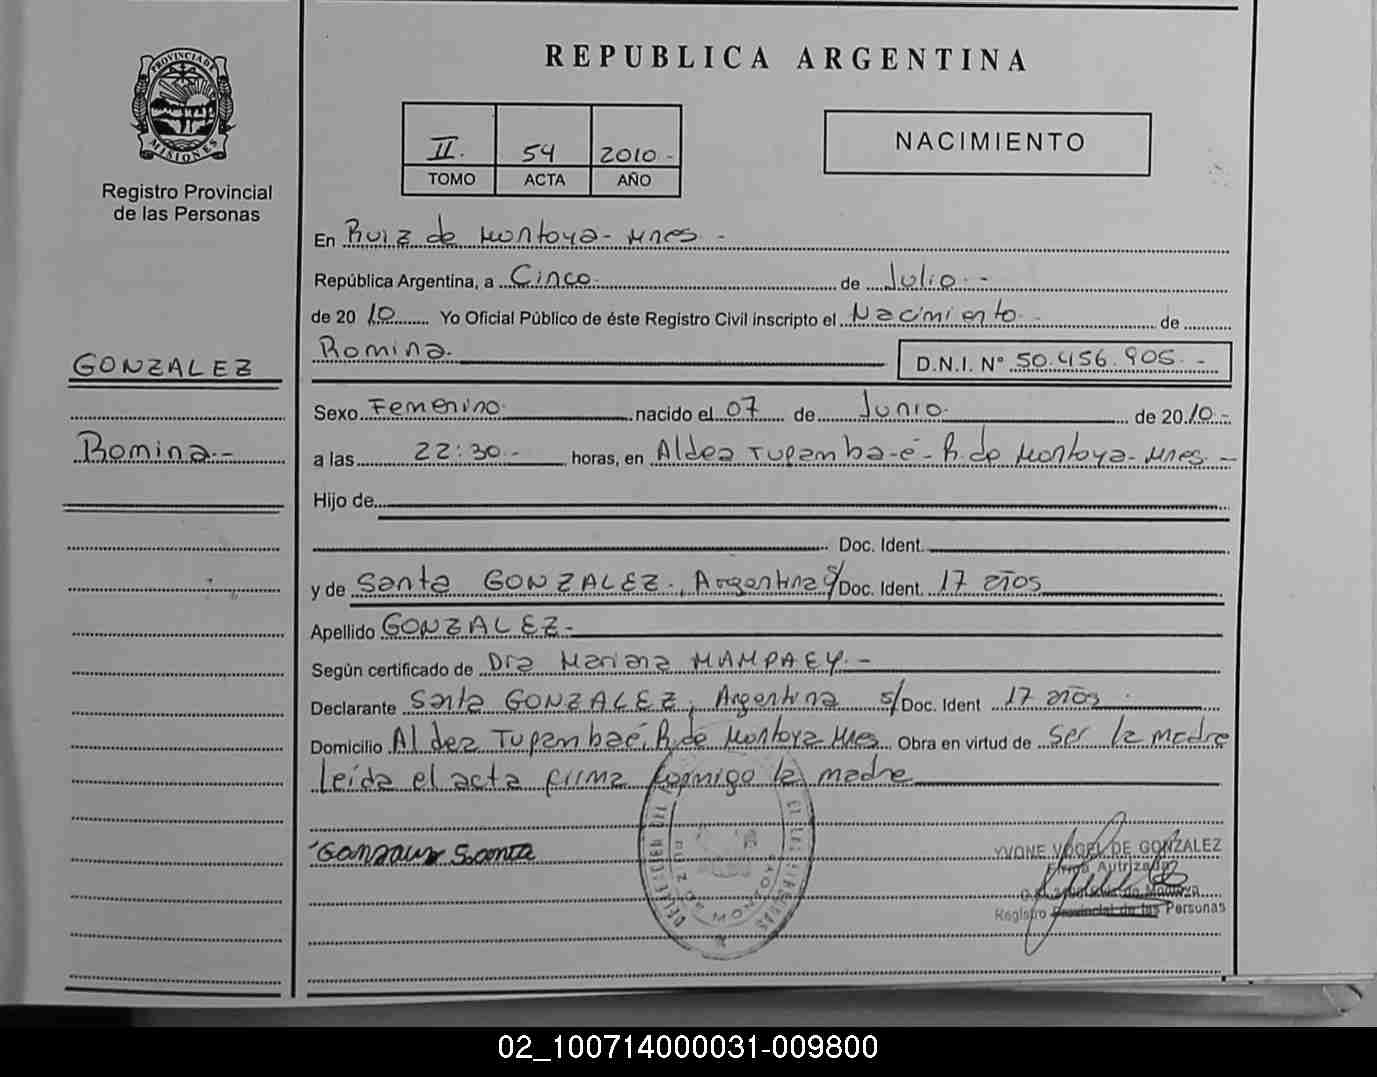 PROVINCIA DE
MISIONES
Registro Provincial
de las Personas
GONZALEZ
Romina.-
REPUBLICA ARGENTINA
II. 54 2010-
TOMO ACTA AÑO
NACIMIENTO
En Ruiz de Montoya- Mnes.-
República Argentina, a Cinco. de Julio.-
de 2010 Yo Oficial Público de éste Registro Civil inscripto el Nacimiento.- de
Romina. D.N.I. N° 50.456.905.-
Sexo Femenino. nacido el 07 de Junio. de 2010.-
a las 22:30.- horas, en Aldea Tupamba-é-R.de Montoya-Mnes.-
Hijo de
Doc. Ident.
y de Santa GONZALEZ., Argentina s/Doc. Ident. 17 años
Apellido GONZALEZ.-
Según certificado de Dra Mariana MAMPAEY.-
Declarante Santa GONZALEZ, Argentina s/Doc. Ident 17 años.
Domicilio Aldea Tupambaé, R.de Montoya Mnes. Obra en virtud de Ser la madre
Leída el acta firma conmigo la madre
Santa
YVONE VOGEL DE GONZALEZ
Registro Provincial de las Personas
02_100714000031-009800